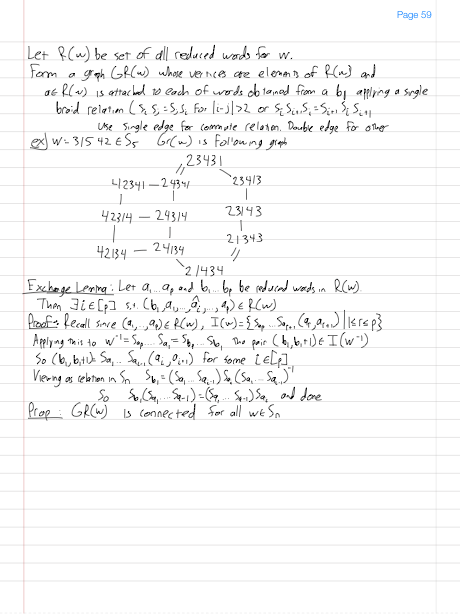 Page 59
Let R(w) be set of all reduced words for w.
Form a graph GR(w) whose vertices are elements of R(w) and
a∈R(w) is attached to each of words obtained from a by applying a single
braid relation (S_i S_j = S_j S_i for |i-j|>2 or S_i S_{i+1} S_i = S_{i+1} S_i S_{i+1}
Use single edge for commute relation. Double edge for other
ex) w=31542∈S_5 Gr(w) is following graph
23431
42341 — 24341 23413
42314 — 24314 23143
42134 — 24134 21343
21434
Exchange Lemma: Let a_1...a_p and b_1...b_p be reduced words in R(w).
Then ∃i∈[p] s.t. (b_1,a_1,...,â_i,...,a_p)∈R(w)
Proof: Recall since (a_1,...,a_p)∈R(w), I(w)={S_{a_p}...S_{a_{r+1}}(a_r,a_r+1) | 1≤r≤p}
Applying this to w^{-1}=S_{a_p}...S_{a_1}=S_{b_p}...S_{b_1} The pair (b_1,b_1+1)∈I(w^{-1})
So (b_1,b_1+1)=S_{a_1}...S_{a_{i-1}}(a_i,a_i+1) for some i∈[p]
Viewing as relation in S_n S_{b_1}=(S_{a_1}...S_{a_{i-1}})S_{a_i}(S_{a_1}...S_{a_{i-1}})^{-1}
So S_{b_1}(S_{a_1}...S_{a_{i-1}})=(S_{a_1}...S_{a_{i-1}})S_{a_i} and done
Prop: GR(w) is connected for all w∈S_n